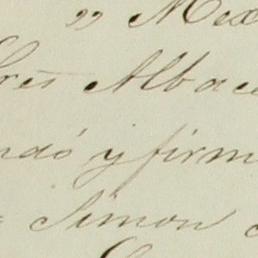 " Mex
res Albace
ndó y firm
Simon